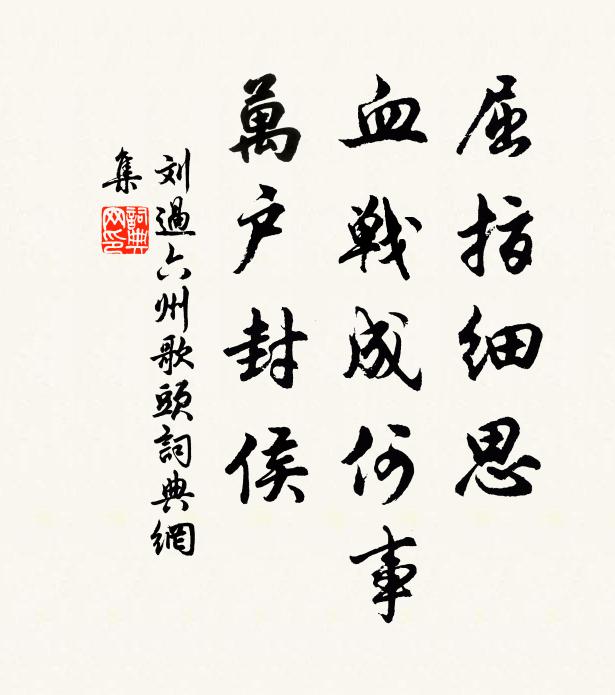 屈指细思
血戰成何事
萬户封侯
刘過六州歌頭詞典網
集
詞典网印